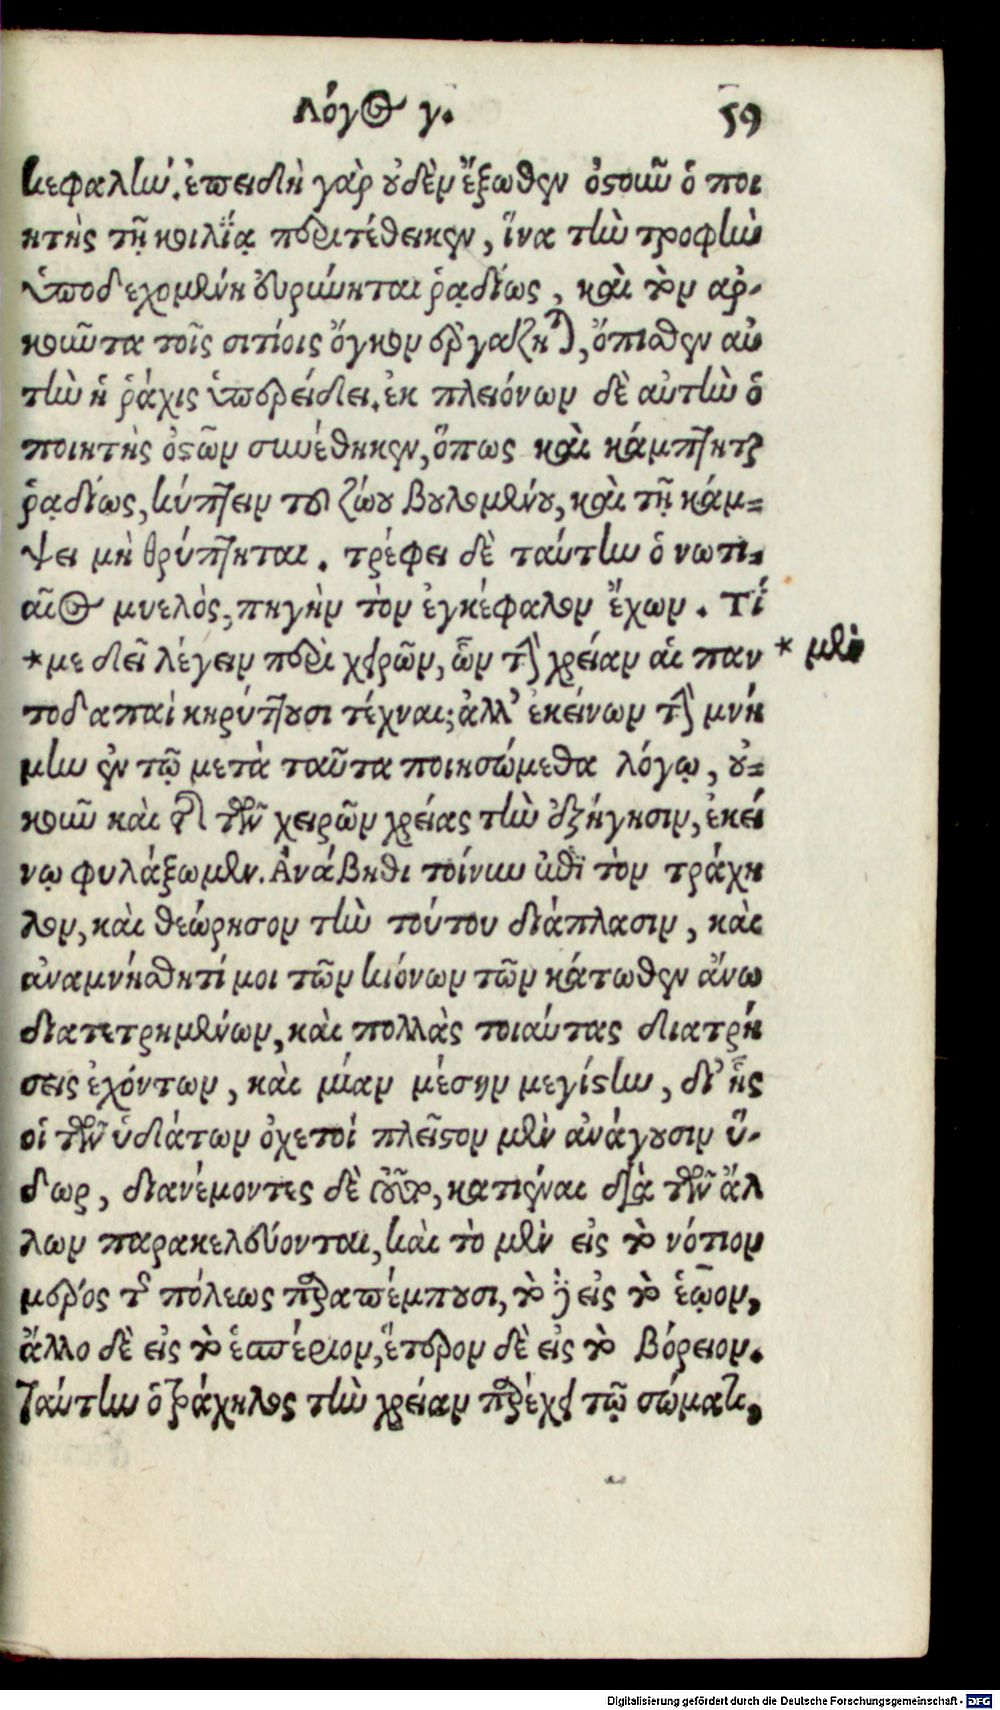 Λόγος γ. 59
κεφαλὴν. ἐπειδὴ γὰρ οὐδὲν ἔξωθεν ὀστοῦν ὁ ποι
ητὴς τῇ κοιλίᾳ περιτέθεικεν, ἵνα τὴν τροφὴν
ὑποδεχομένη εὐρύνηται ῥᾳδίως, καὶ τὸν αρ-
κοῦντα τοῖς σιτίοις ὄγκον ἐργάζηται, ὄπισθεν αὐ
τὴν ἡ ῥάχις ὑπερείδει. ἐκ πλειόνων δὲ αὐτὴν ὁ
ποιητὴς ὀστῶν συνέθηκεν, ὅπως καὶ κάμπτηται
ῥᾳδίως, κύπτειν τοῦ ζώου βουλομένου, καὶ τῇ κάμ-
ψει μὴ θρύπτηται. τρέφει δὲ ταύτην ὁ νωτι-
αῖος μυελὸς, πηγὴν τὸν ἐγκέφαλον ἔχων. Τί
*με δεῖ λέγειν περὶ χειρῶν, ὧν τὴν χρείαν αἱ παν * μὲν
τοδαπαὶ κηρύττουσι τέχναι; ἀλλ’ ἐκείνων τὴν μνή
μην ἐν τῷ μετὰ ταῦτα ποιησώμεθα λόγῳ, οὐ-
κοῦν καὶ τὴν τῶν χειρῶν χρείας τὴν ἐξήγησιν, ἐκεί
νῳ φυλάξωμεν. Ἀνάβηθι τοίνυν ἐπὶ τὸν τράχη
λον, καὶ θεώρησον τὴν τούτου διάπλασιν, καὶ
ἀναμνήσθητί μοι τῶν κιόνων τῶν κάτωθεν ἄνω
διατετρημένων, καὶ πολλὰς τοιαύτας διατρή
σεις ἐχόντων, καὶ μίαν μέσην μεγίστην, δι’ ἧς
οἱ τῶν ὑδάτων ὀχετοί πλεῖστον μὲν ἀνάγουσιν ὕ-
δωρ, διανέμοντες δὲ τοῦτο, κατιέναι διὰ τῶν ἄλ
λων παρακελεύονται, καὶ τὸ μὲν εἰς τὸ νότιον
μέρος τῆς πόλεως παραπέμπουσι, τὸ δὲ εἰς τὸ ἑῷον,
ἄλλο δὲ εἰς τὸ ἑσπέριον, ἕτερον δὲ εἰς τὸ βόρειον.
Ταύτην ὁ τράχηλος τὴν χρείαν παρέχει τῷ σώματι,
Digitalisierung gefördert durch die Deutsche Forschungsgemeinschaft - DFG